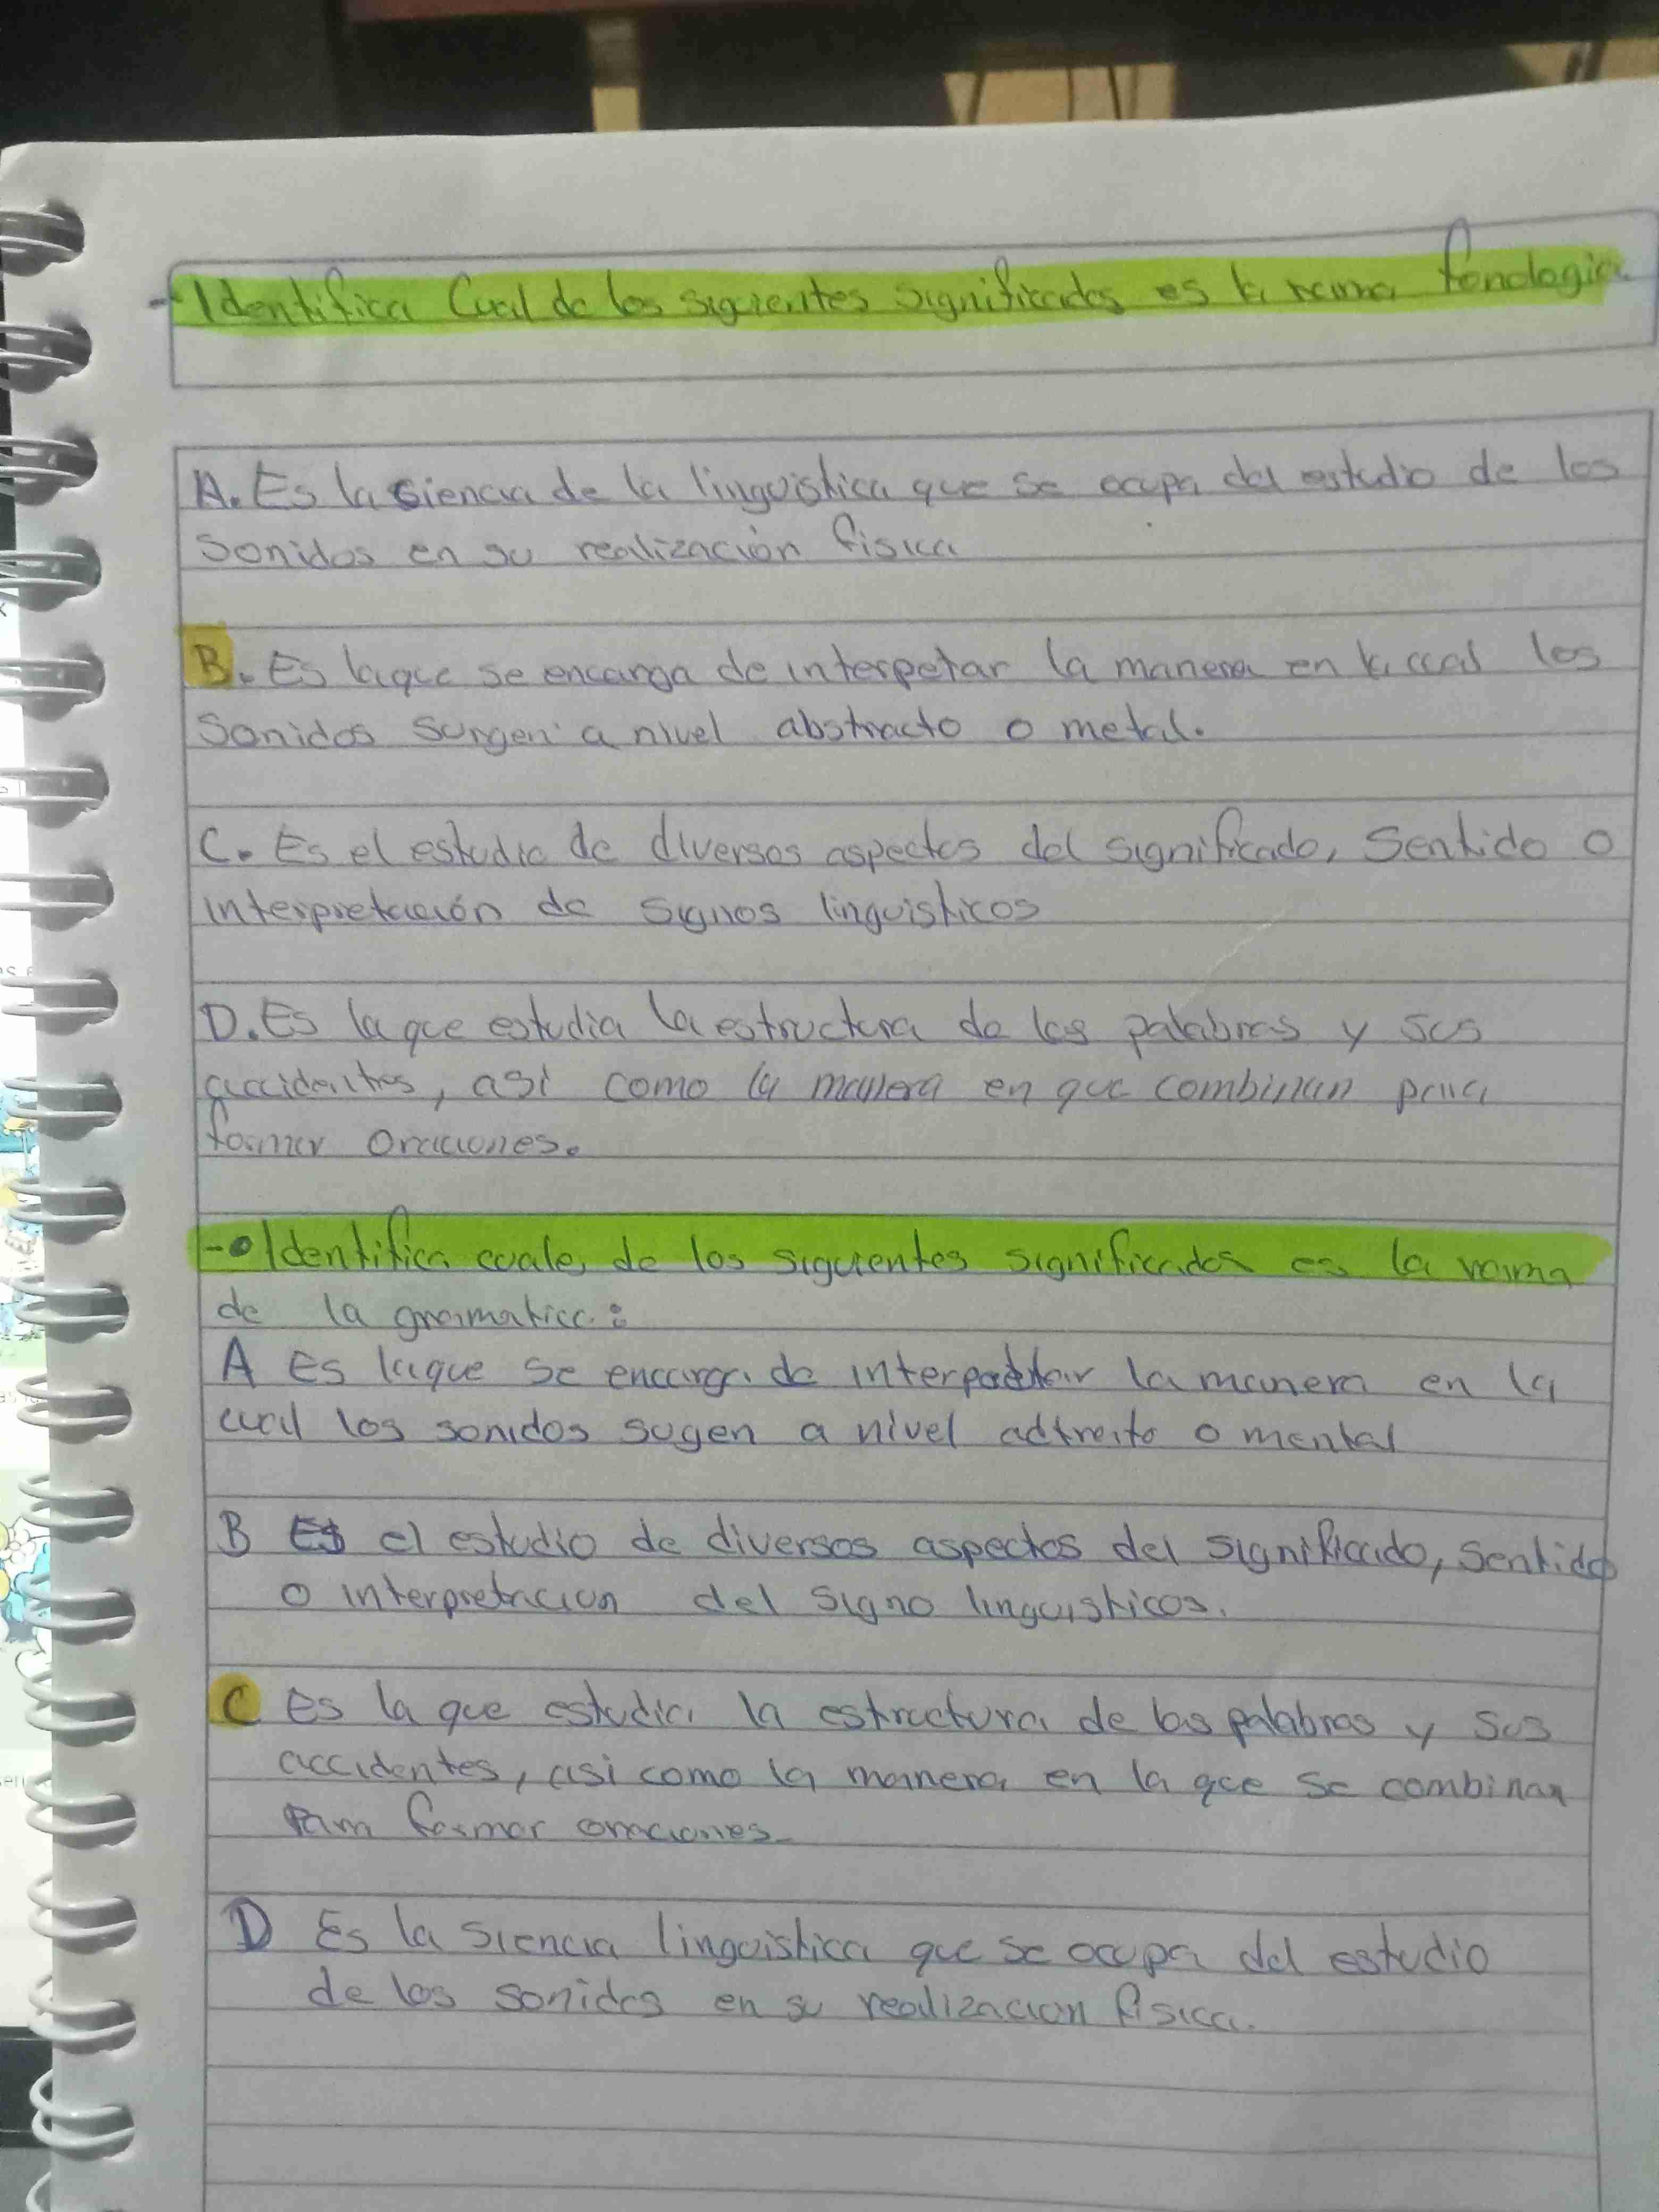 - Identifica Cual de los siguientes significados es la rama fonologia
A. Es la ciencia de la linguistica que se ocupa del estudio de los
sonidos en su realización fisica
B. Es la que se encarga de interpetar la manera en la cual los
sonidos surgen a nivel abstracto o metal.
C. Es el estudio de diversos aspectos del significado, Sentido o
interpretación de signos linguisticos
D. Es la que estudia la estructura de las palabras y sus
accidentes, asi como la manera en que combinan para
formar oraciones.
- Identifica cuale de los siguientes significados es la rama
de la gramatica:
A Es la que se encarga de interpretar la manera en la
cual los sonidos sugen a nivel adtreito o mental
B Es el estudio de diversos aspectos del significado, sentido
o interpretacion del signo linguisticos.
C es la que estudia la estructura de las palabras y sus
accidentes, asi como la manera en la que se combinan
Para formar oraciones.
D Es la siencia linguistica que se ocupa del estudio
de los sonidos en su realizacion fisica.